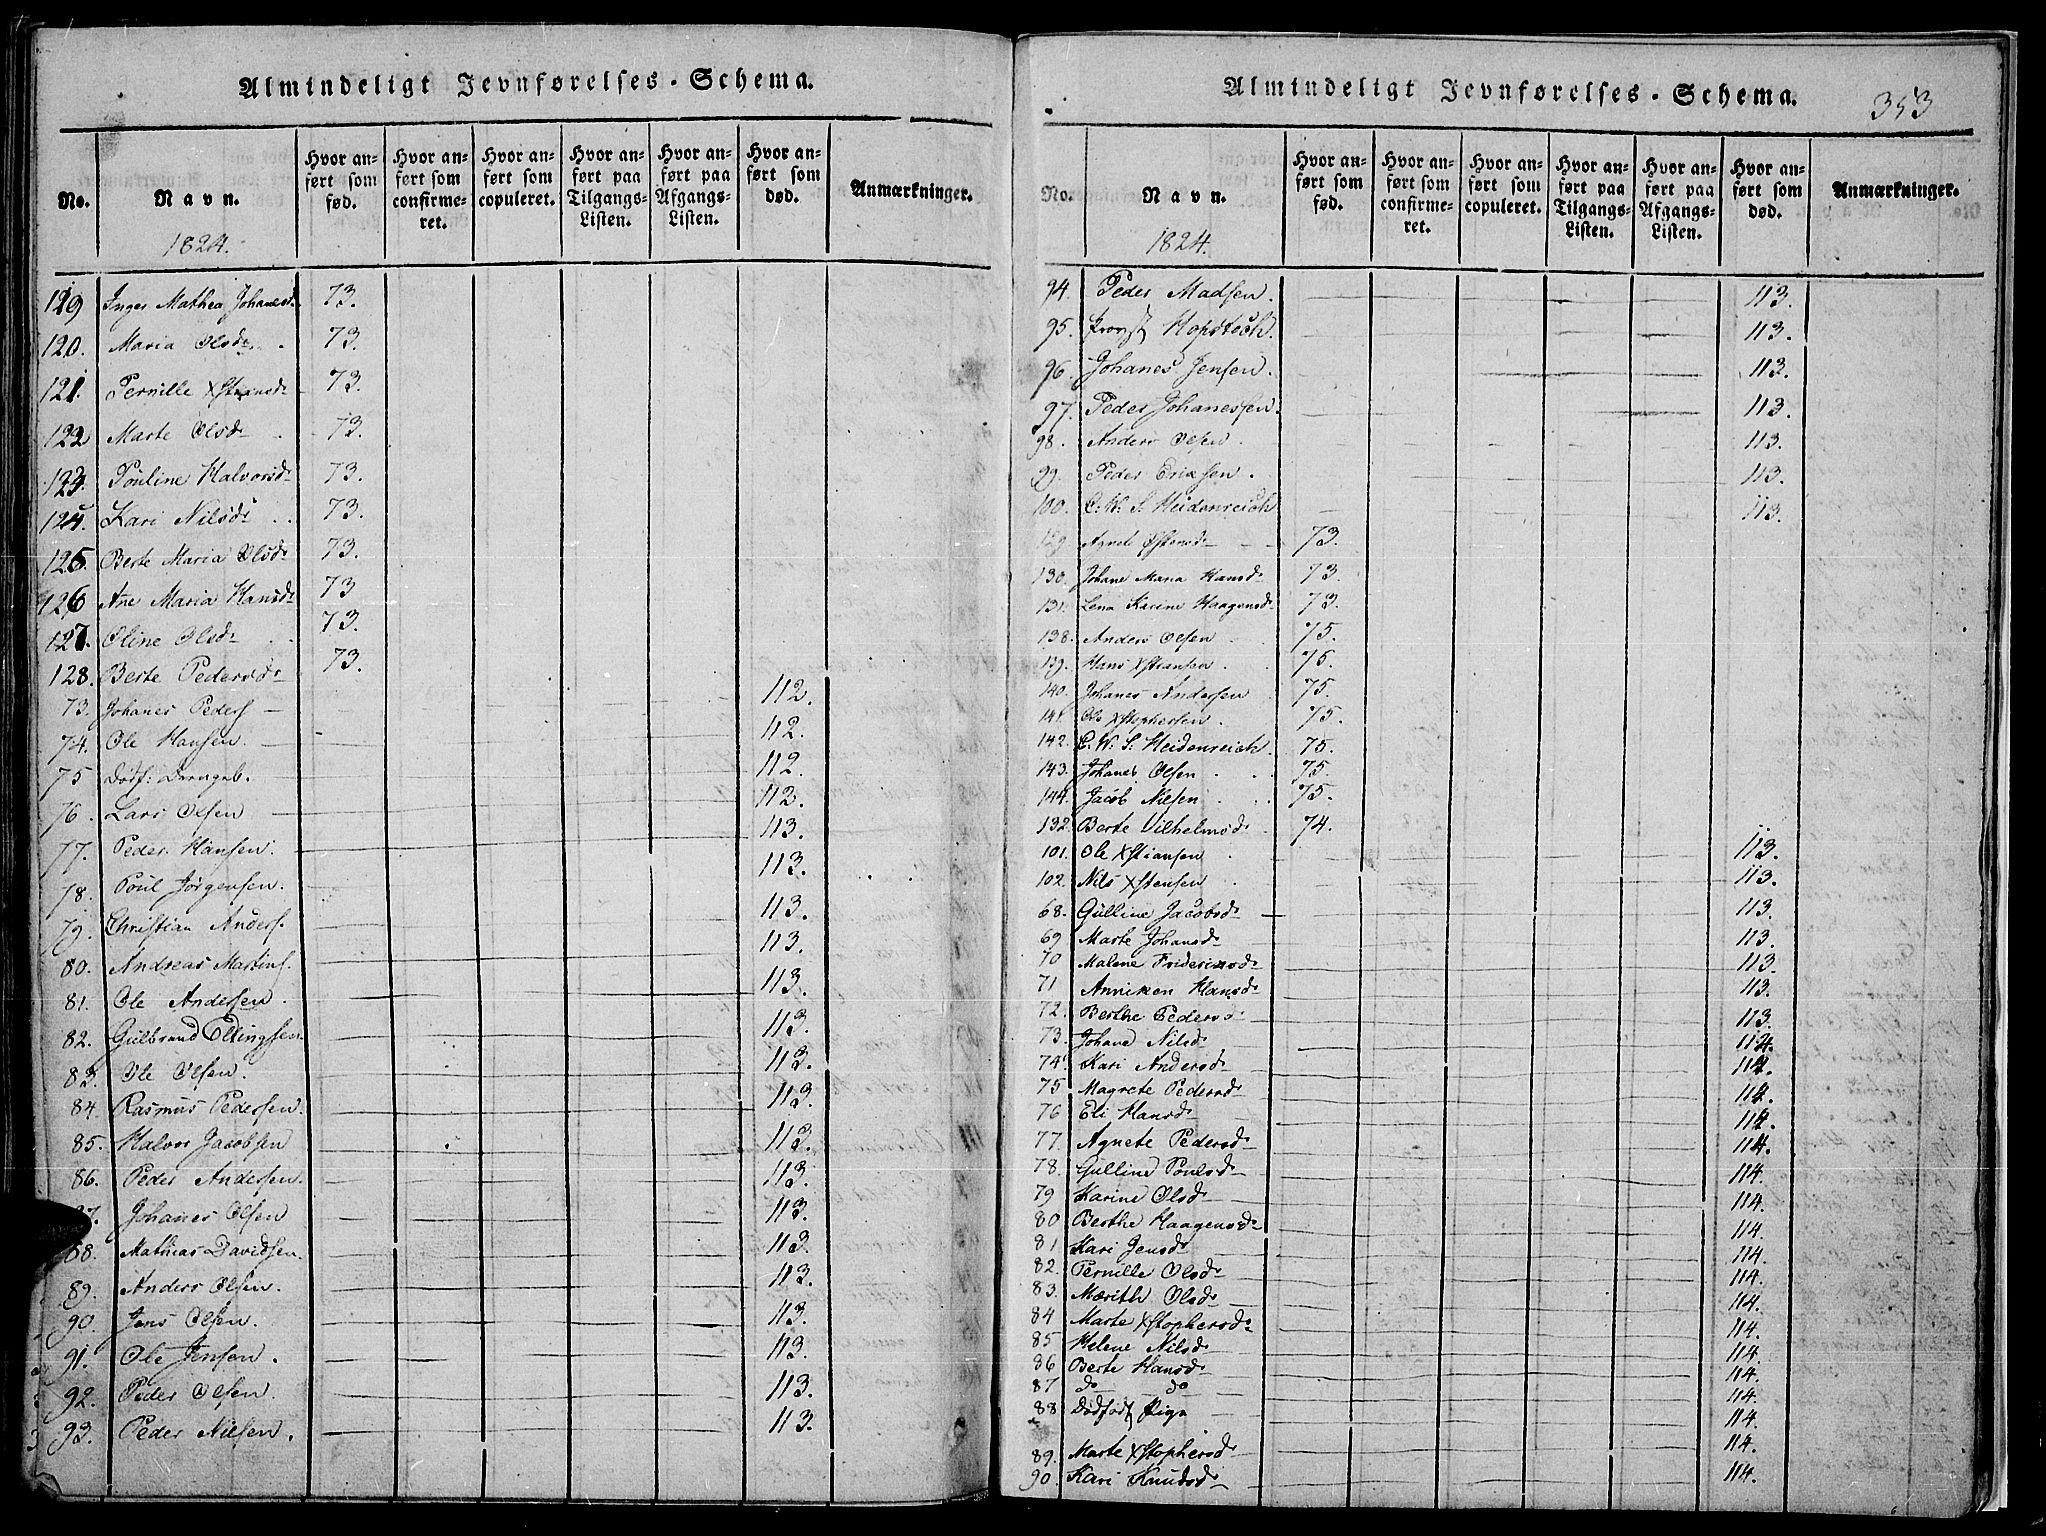 Almindeligt Jevnførelses-Schema.
No.
Navn.
1824.
Hvor an-
ført som
fød.
Hvor an-
ført som
confirme-
ret.
Hvor an-
ført som
copuleret.
Hvor an-
ført paa
Tilgangs-
Listen.
Hvor an-
ført paa
Afgangs-
Listen.
Hvor an-
ført som
død.
Anmærkninger.
119 Inger Mathea Johanesd. 73.
120. Maria Olsd. 73.
121. Pernille Xstiansd. 73.
122 Marte Olsd. 73.
123. Pouline Halvorsd. 73.
124. Kari Nilsd. 73.
125. Berte Maria Olsd. 73.
126 Ane Maria Hansd. 73
127. Oline Olsd. 73.
128. Berte Pedersd. 73.
73. Johanes Peders 112.
74. Ole Hansen. 112.
75 Dødf: Drengeb. 112.
76. Lars Olsen 112.
77. Peder Hansen. 113.
78. Poul Jørgensen. 113.
79. Christian Anders. 113.
80. Andreas Martins. 113.
81. Ole Andersen. 113.
82. Gulbrand Ellingsen. 113.
83. Ole Olsen. 113.
84. Rasmus Pedersen. 113.
85. Halvor Jacobsen 113.
86. Peder Andersen. 113.
87. Johanes Olsen 113.
88. Mathias Davidsen. 113.
89. Anders Olsen. 113.
90. Jens Olsen. 113.
91. Ole Jensen. 113.
92. Peder Olsen. 113.
93. Peder Nielsen. 113.
Almindeligt Jevnførelses-Schema.
353
No.
Navn.
1824.
Hvor an-
ført som
fød.
Hvor an-
ført som
confirme-
ret.
Hvor an-
ført som
copuleret.
Hvor an-
ført paa
Tilgangs-
Listen.
Hvor an-
ført paa
Afgangs-
Listen.
Hvor an-
ført som
død.
Anmærkninger.
94. Peder Madsen. 113.
95. Provst Hopstoch. 113.
96. Johanes Jensen. 113.
97. Peder Johanessen. 113.
98. Anders Olsen. 113.
99. Peder Erixsen. 113.
100. C. W. S. Heidenreich 113.
129. Agnete Xstensd. 73.
130. Johane Maria Hansd. 73.
131. Lena Karine Haagensd. 73.
138. Anders Olsen 75.
139. Hans Xstiansen. 75.
140. Johanes Andersen 75.
141. Ole Xstophersen. 75.
142. C. W. S. Heidenreich. 75.
143. Johanes Olsen 75.
144. Jacob Nielsen 75.
132. Berte Vilhelmsd. 74.
101. Ole Xstiansen 113.
102. Nils Xstensen 113.
68. Gulline Jacobsd. 113.
69 Marte Johansd. 113.
70 Malene Friderixsd. 113.
71 Anniken Hansd. 113.
72. Berthe Pedersd. 113.
73. Johane Nilsd. 114.
74. Kari Andersd. 114.
75 Magrete Pedersd. 114.
76 Eli Hansd. 114.
77. Agnete Pedersd. 114.
78. Gulline Poulsd. 114.
79 Karine Olsd. 114.
80 Berthe Haagensd. 114.
81 Kari Jensd. 114.
82. Pernille Olsd. 114.
83. Marith Olsd. 114.
84 Marte Xstophersd. 114.
85 Helene Nilsd. 114.
86 Berte Hansd. 114.
87 do do 114.
88 Dødfødt Pige 114.
89. Marte Xstophersd. 114.
90. Kari Knudsd. 114.